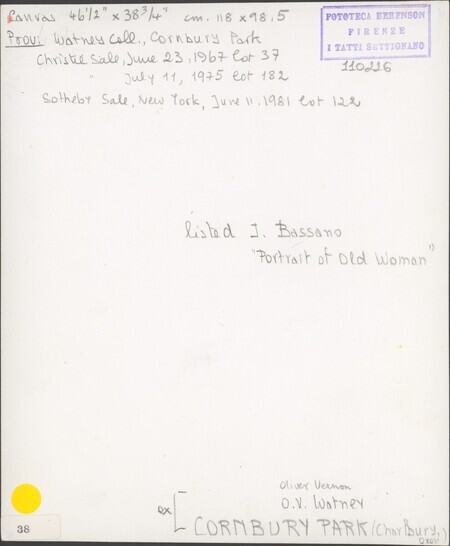 Canvas 46 1/2" x 38 3/4" cm. 118 x 98,5
Prov: Watney Coll., Cornbury Park
Christie Sale, June 23, 1967 lot 37
" July 11, 1975 lot 182
Sotheby Sale, New York, June 11. 1981 lot 122
FOTOTECA BERENSON
FIRENZE
I TATTI SETTIGNANO
110216
listed J. Bassano
"Portrait of Old Woman"
Oliver Vernon
O.V. Watney
ex [ CORNBURY PARK (Charlbury,
Oxon.)
38